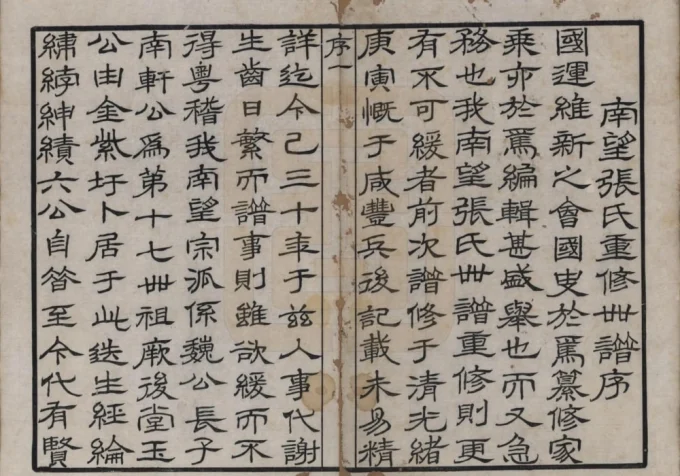 南望張氏重修世譜序
國運維新之會國史於焉纂修家
乘亦於焉編輯甚盛舉也而又急
務也我南望張氏世譜重修則更
有不可緩者前次譜修于清光緒
庚寅慨于咸豐兵後記載未易精
序一
詳迄今已三十年于茲人事代謝
生齒日繁而譜事則雖欲緩而不
得粵稽我南望宗派係魏公長子
南軒公爲第十七世祖厥後堂玉
公由金紫圩卜居于此迭生經綸
繡綍紳績六公自昔至今代有賢